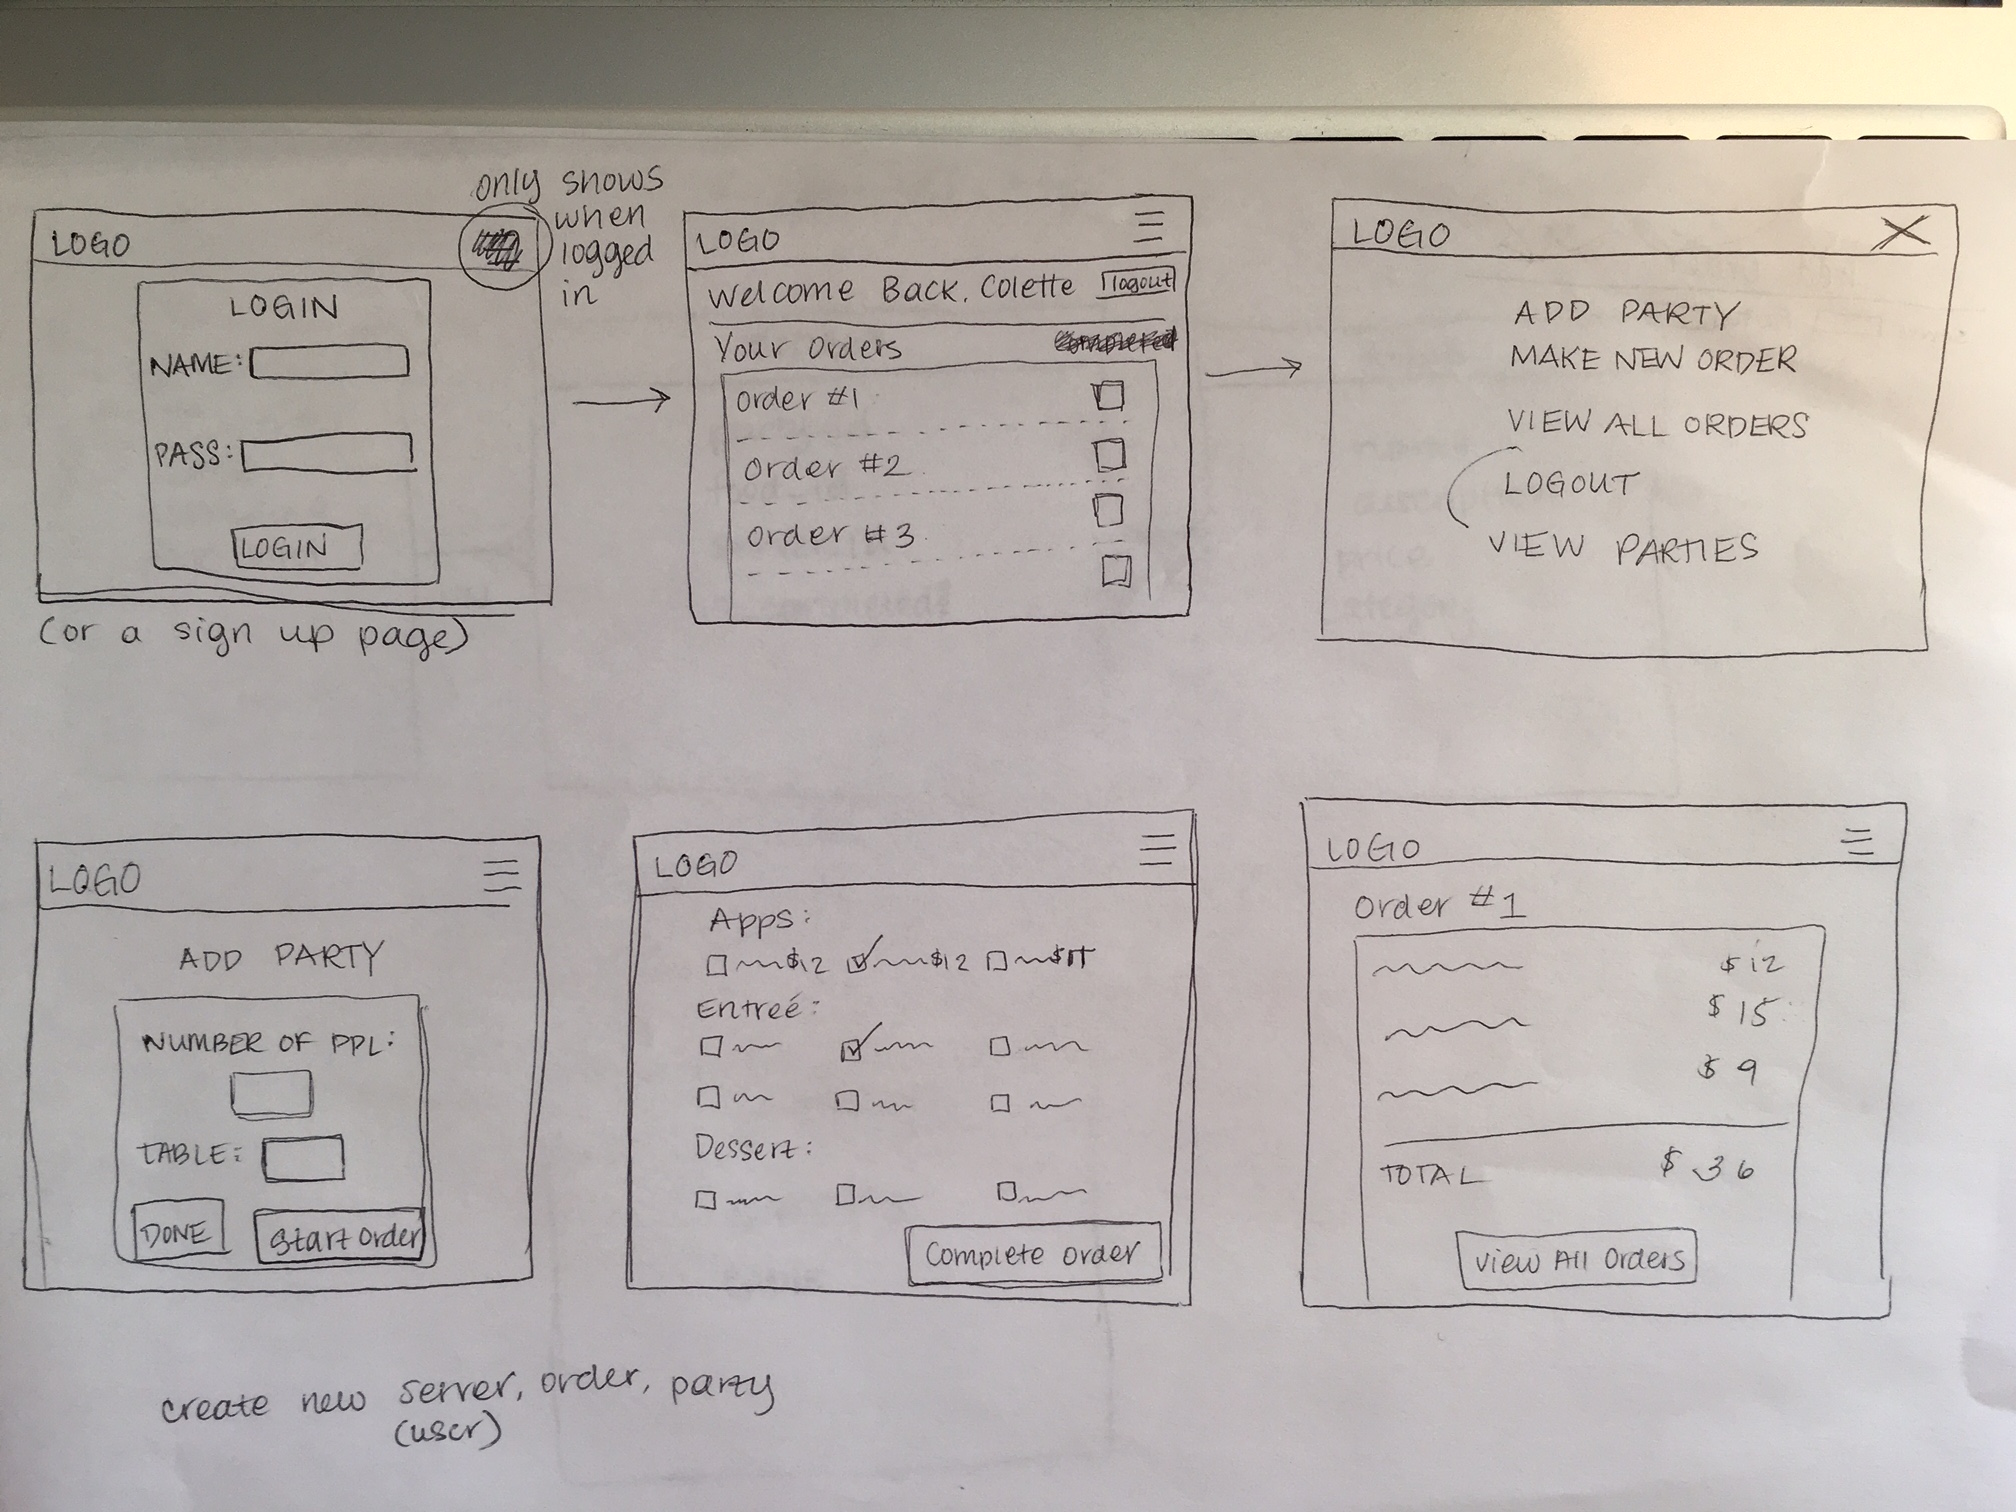 only shows
when
logged
in
LOGO
LOGIN
NAME:
PASS:
LOGIN
(or a sign up page)
LOGO
Welcome Back, Colette logout
Your Orders
order #1
order #2
order #3
LOGO X
ADD PARTY
MAKE NEW ORDER
VIEW ALL ORDERS
LOGOUT
VIEW PARTIES
LOGO
ADD PARTY
NUMBER OF PPL:
TABLE:
DONE Start Order
LOGO
Apps:
$12 $12
Entreé:
Dessert:
Complete order
LOGO
Order #1
$12
$15
$9
TOTAL $36
View All Orders
create new server, order, party
(user)